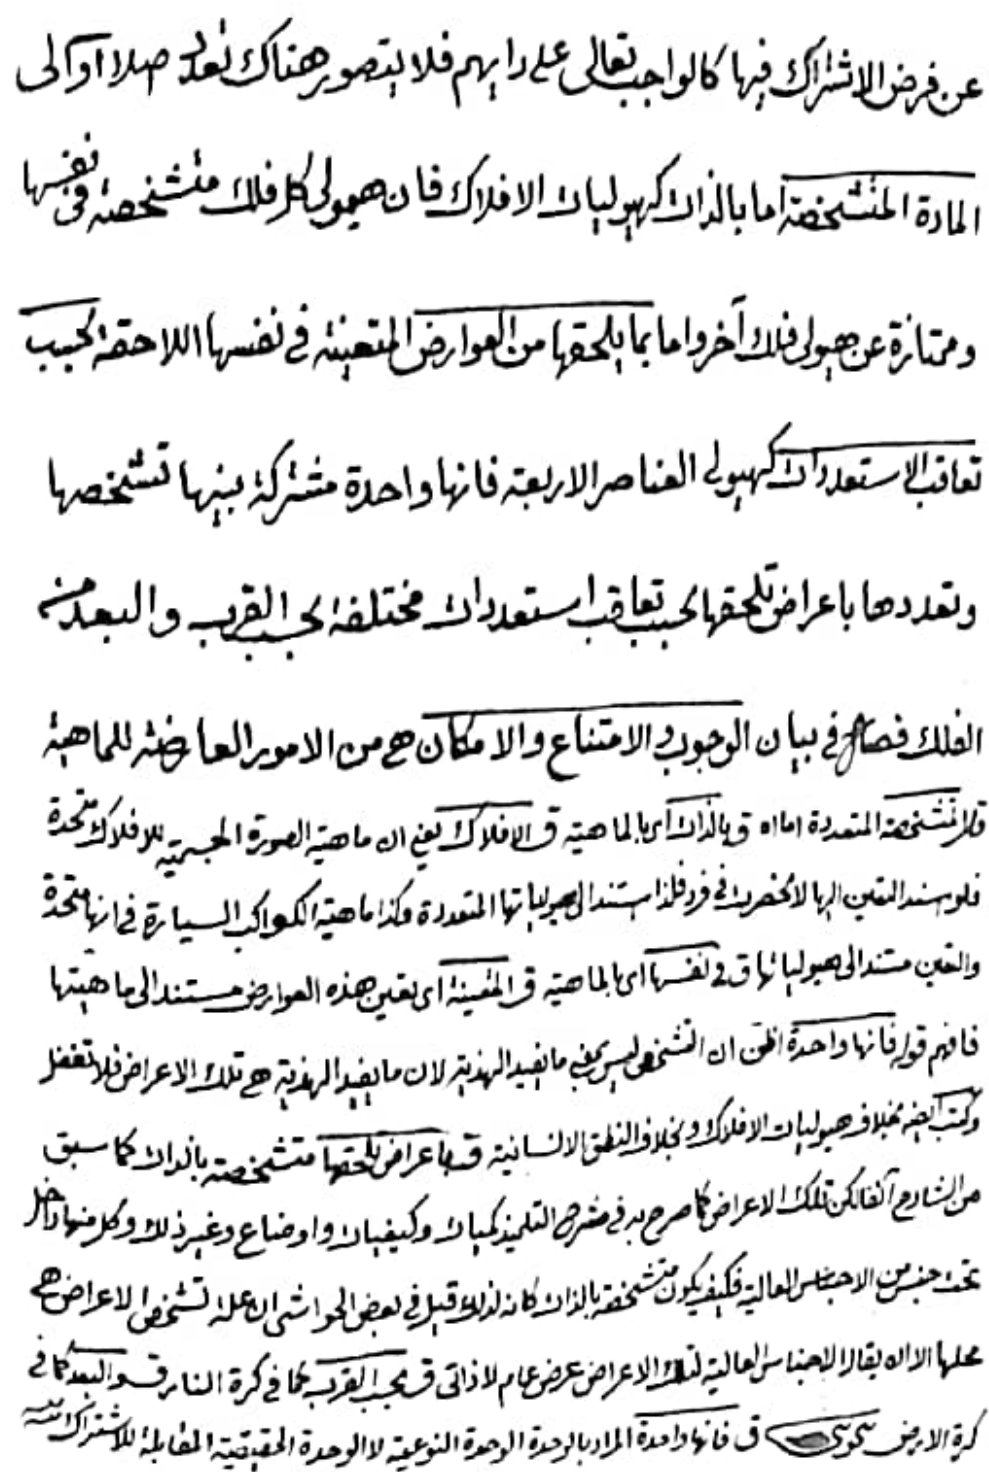 عن فرض الاشتراك فيها كالواجب تعالى على رايهم فلا يتصور هناك تعدد اصلا او الى
المادة المتشخصة اما بالذات كهيوليات الافلاك فان هيولى كل فلك متشخصة فى نفسها
وممتازة عن هيولى فلك آخر واما بما يلحقها من العوارض المتعينة في نفسها اللاحقة بحسب
تعاقب الاستعدادات كهيولى العناصر الاربعة فانها واحدة مشتركة بينها تشخصها
وتعددها باعراض تلحقها بحسب تعاقب استعدادات مختلفة بحسب القرب والبعد من
الفلك فصل في بيان الوجوب والامتناع والامكان هي من الامور العارضة للماهية
المتشخصة المتعددة اما ق بالذات اى بالماهية ق الافلاك يعني ان ماهية الصورة الجسمية للافلاك متحدة
فلو سند التعين اليها لانحصرت في فرد فلذا استند الى هيولياتها المتعددة وكذا ماهية الكواكب السيارة فانها متحدة
والتعين مستند الى هيولياتها ق في نفسها اى بالماهية ق المتعينة اى تعين هذه العوارض مستند الى ماهيتها
فافهم قوله فانها واحدة اظن ان التشخص ليس بمعنى ما يفيد الهذية لان ما يفيد الهذية هي تلك الاعراض فلا تغفل
وكتب ايضه بخلاف هيوليات الافلاك وبخلاف النطق الانسانية ق باعراض تلحقها متشخصة بالذات كما سبق
من الشارح آنفا لكن تلك الاعراض كما صرح به في شرح التلميذ كميات وكيفيات واوضاع وغير ذلك وكل منها داخل
تحت جنس من الاجناس العالية فكيف يكون متشخصة بالذات كانه لذلك قيل في بعض الحواشى ان علة تشخص الاعراض هي
محلها الا ان يقال الاجناس العالية لتلك الاعراض عرض عام لا ذاتى ق بحسب القرب كما في كرة النار ق والبعد كما في
كرة الارض ق فانها واحدة المراد بالوحدة الوحدة النوعية لا الوحدة الحقيقية المقابلة للاشتراك